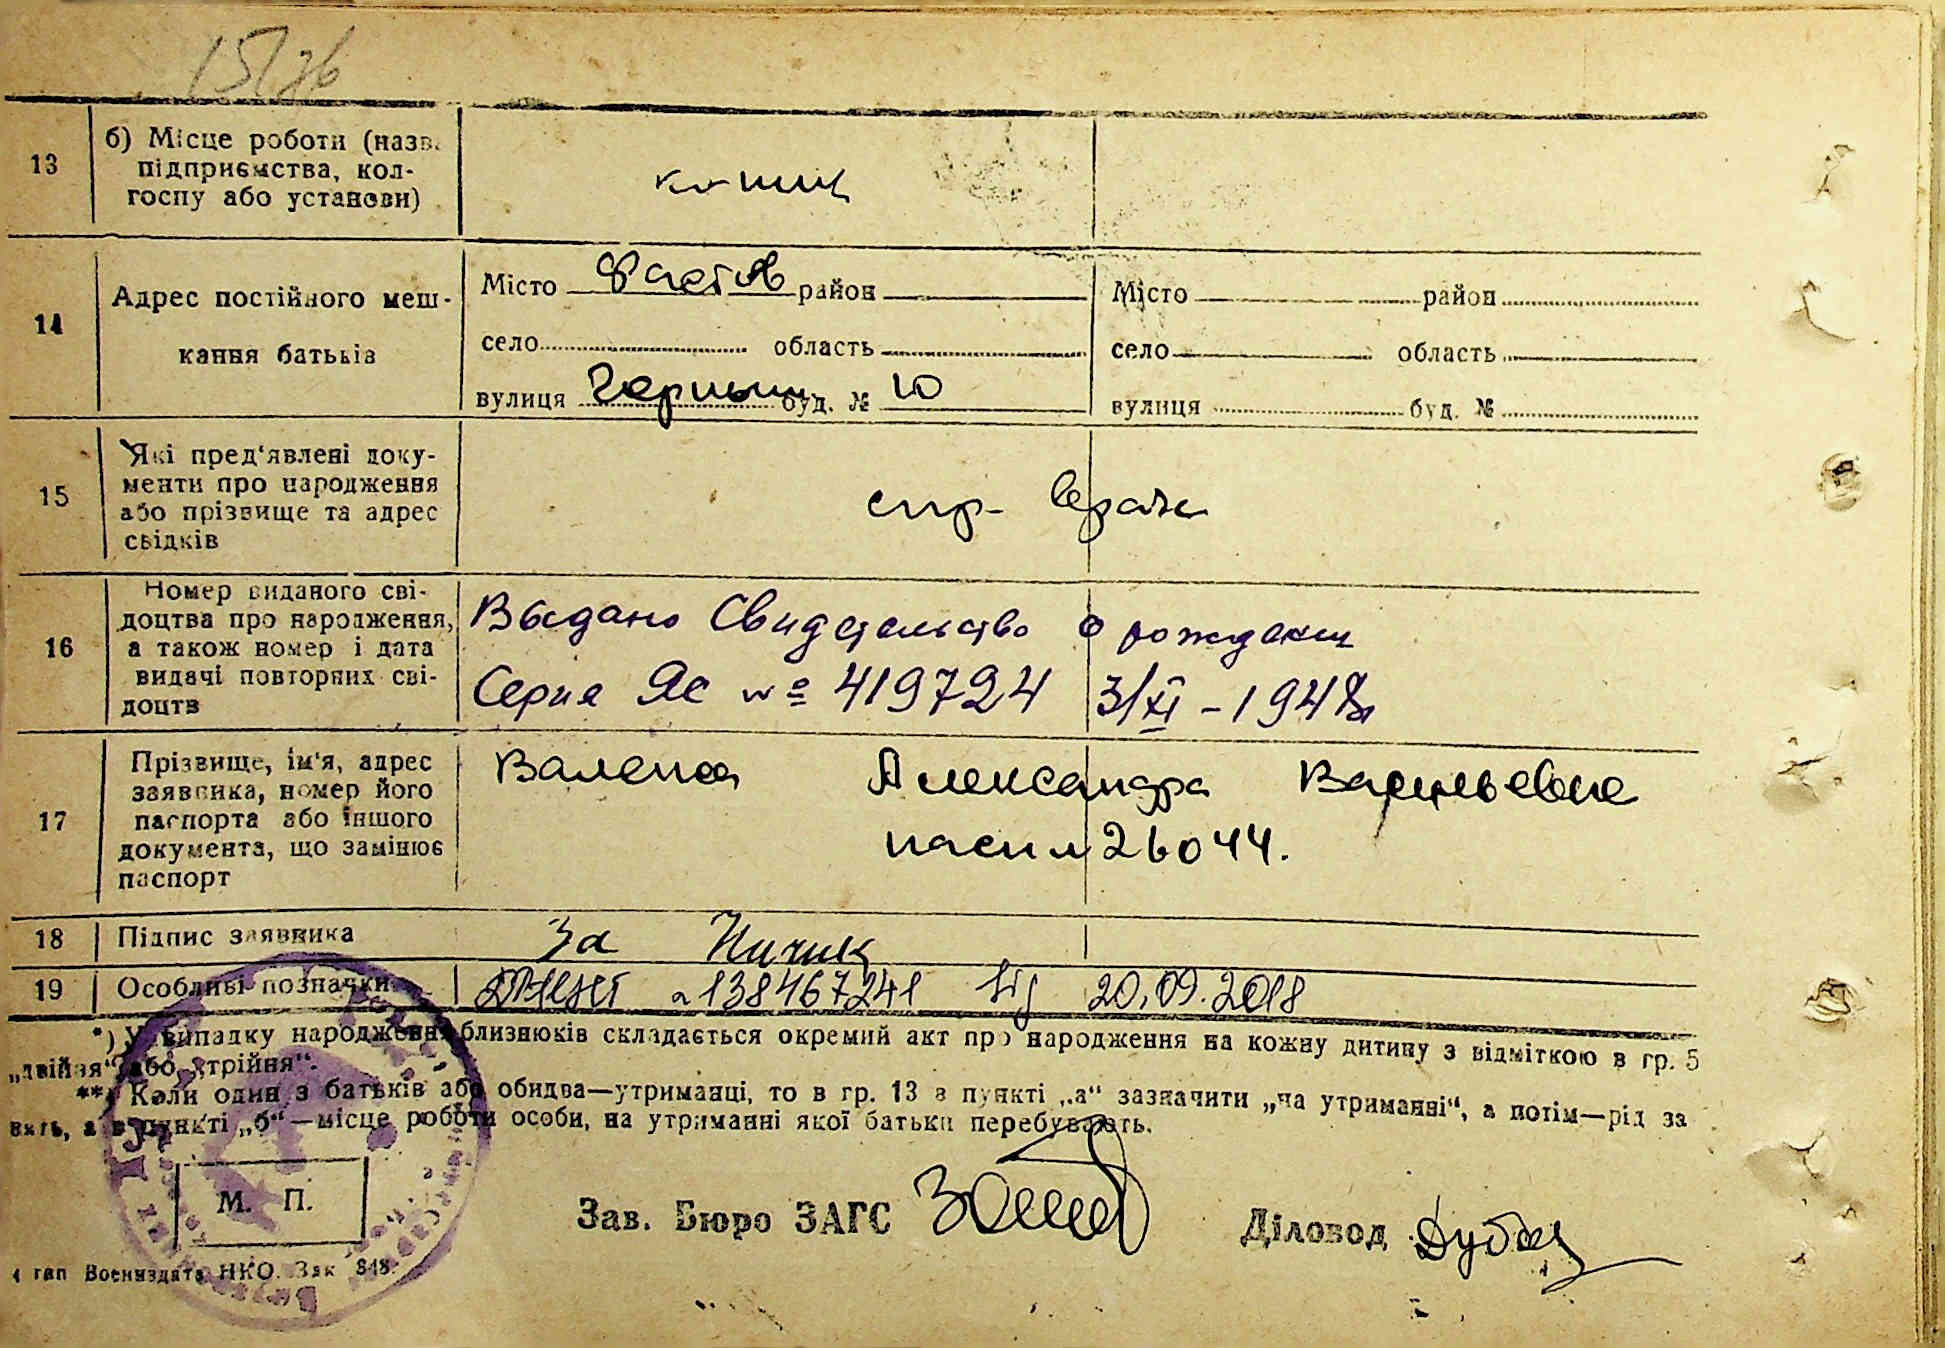 15/26
13
б) Місце роботи (назв.
підприємства, кол-
госпу або установи)
14
Адрес постійного меш-
кання батьків
Місто Фастов район
село область
вулиця Черныш буд. № 10
Місто район
село область
вулиця буд. №
15
Які пред‘явлені доку-
менти про народження
або прізвище та адрес
свідків
спр. врача
16
Номер виданого сві-
доцтва про народження,
а також номер і дата
видачі повторних сві-
доцтв
Выдано Свидетельство о рождении
Серия ЯС № 419724 3/XI - 1948
17
Прізвище, ім'я, адрес
заявника, номер його
паспорта або іншого
документа, що замінює
паспорт
Александра Васильевна
26044.
18
Підпис заявника
За
19
Особливі позначки
138467241 від 20.09.2018
*) У випадку народження близнюків складається окремий акт про народження на кожну дитину з відміткою в гр. 5
„двійня“ або „трійня“.
**) Коли один з батьків або обидва—утриманці, то в гр. 13 в пункті „а“ зазначити „на утриманні“, а потім—рід за
нять, а в пункті „б“—місце роботи особи, на утриманні якої батьки перебувають.
М. П.
Зав. Бюро ЗАГС
Діловод
4 тип Воениздата НКО. Зак 348.